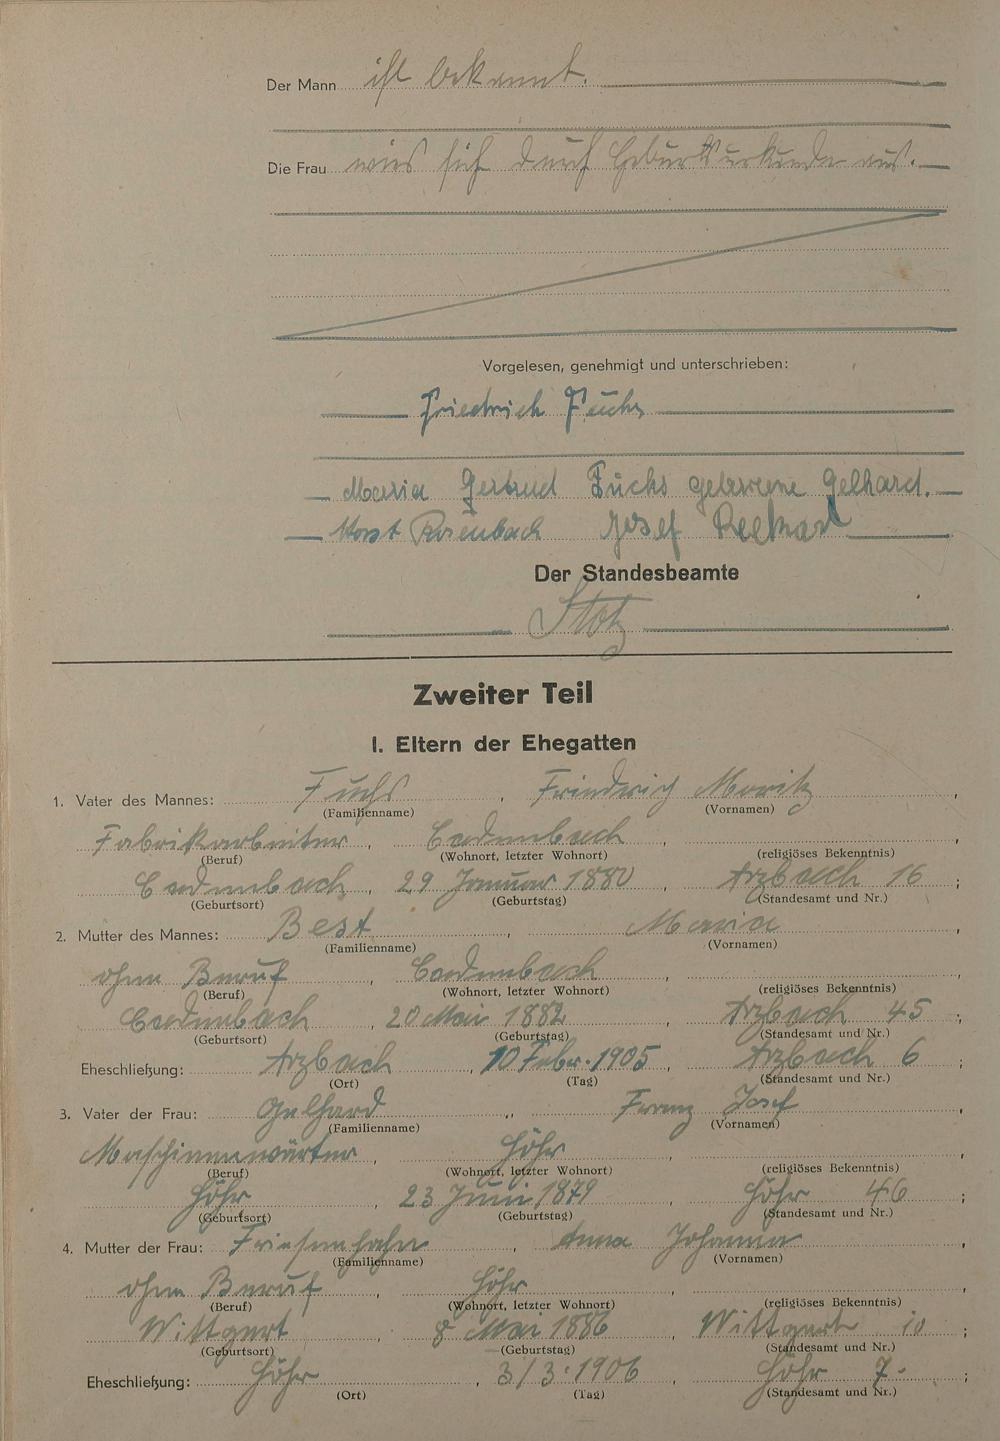 Der Mann ist bekannt.
Die Frau wies sich durch Geburtsurkunde aus.
Vorgelesen, genehmigt und unterschrieben:
Friedrich Fuchs
Maria Gertrud Fuchs geborene Gelhard.
Horst Rosenbach Josef
Der Standesbeamte
Stotz
Zweiter Teil
I. Eltern der Ehegatten
1. Vater des Mannes: Fuchs, Friedrich Moritz,
(Familienname) (Vornamen)
Fabrikarbeiter, Cadenbach, ,
(Beruf) (Wohnort, letzter Wohnort) (religiöses Bekenntnis)
Cadenbach, 29 Januar 1880, Arzbach 16;
(Geburtsort) (Geburtstag) (Standesamt und Nr.)
2. Mutter des Mannes: Best, Maria,
(Familienname) (Vornamen)
ohne Beruf, Cadenbach, ;
(Beruf) (Wohnort, letzter Wohnort) (religiöses Bekenntnis)
Cadenbach, 20 Mai 1882, Arzbach 45;
(Geburtsort) (Geburtstag) (Standesamt und Nr.)
Eheschließung: Arzbach, 10 Febr. 1905, Arzbach 6;
(Ort) (Tag) (Standesamt und Nr.)
3. Vater der Frau: Gelhard, Franz Josef,
(Familienname) (Vornamen)
Maschinenwärter, Höhr, ,
(Beruf) (Wohnort, letzter Wohnort) (religiöses Bekenntnis)
Höhr, 23 Juni 1879, Höhr 46;
(Geburtsort) (Geburtstag) (Standesamt und Nr.)
4. Mutter der Frau: Friesenhahn, Anna Johanna,
(Familienname) (Vornamen)
ohne Beruf, Höhr, ,
(Beruf) (Wohnort, letzter Wohnort) (religiöses Bekenntnis)
Wittgert, 8 Mai 1886, Wittgert 10;
(Geburtsort) (Geburtstag) (Standesamt und Nr.)
Eheschließung: Höhr, 3/3.1906, Höhr 7.;
(Ort) (Tag) (Standesamt und Nr.)